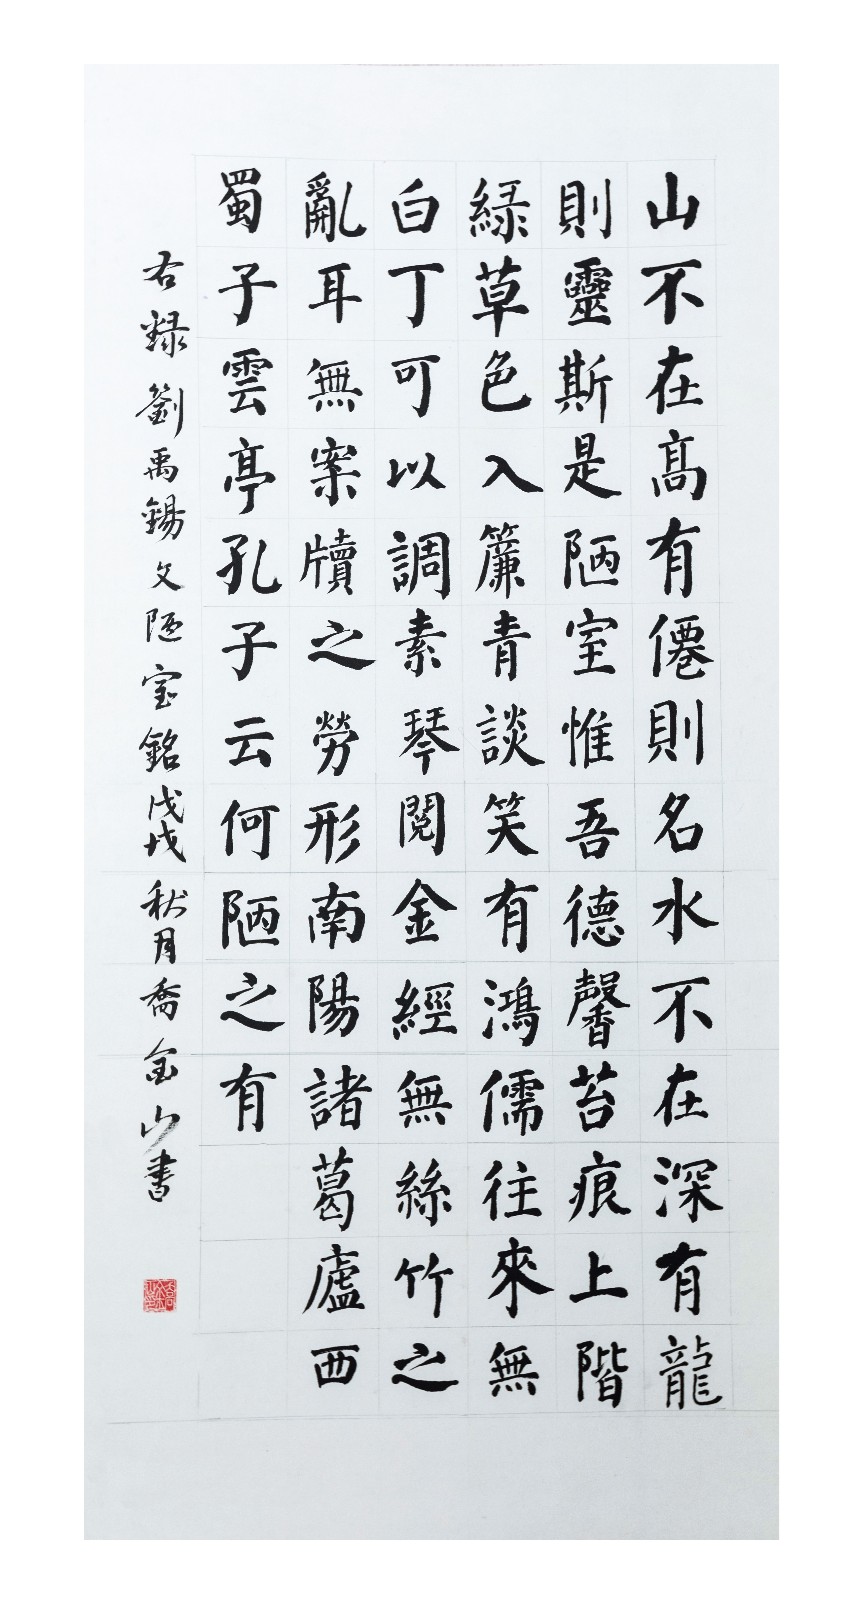 山不在高有僊則名水不在深有龍
則靈斯是陋室惟吾德馨苔痕上階
緑草色入簾青談笑有鴻儒往來無
白丁可以調素琴閱金經無絲竹之
亂耳無案牘之勞形南陽諸葛廬西
蜀子雲亭孔子云何陋之有
右録劉禹錫文陋室銘戊戌秋月喬金山書